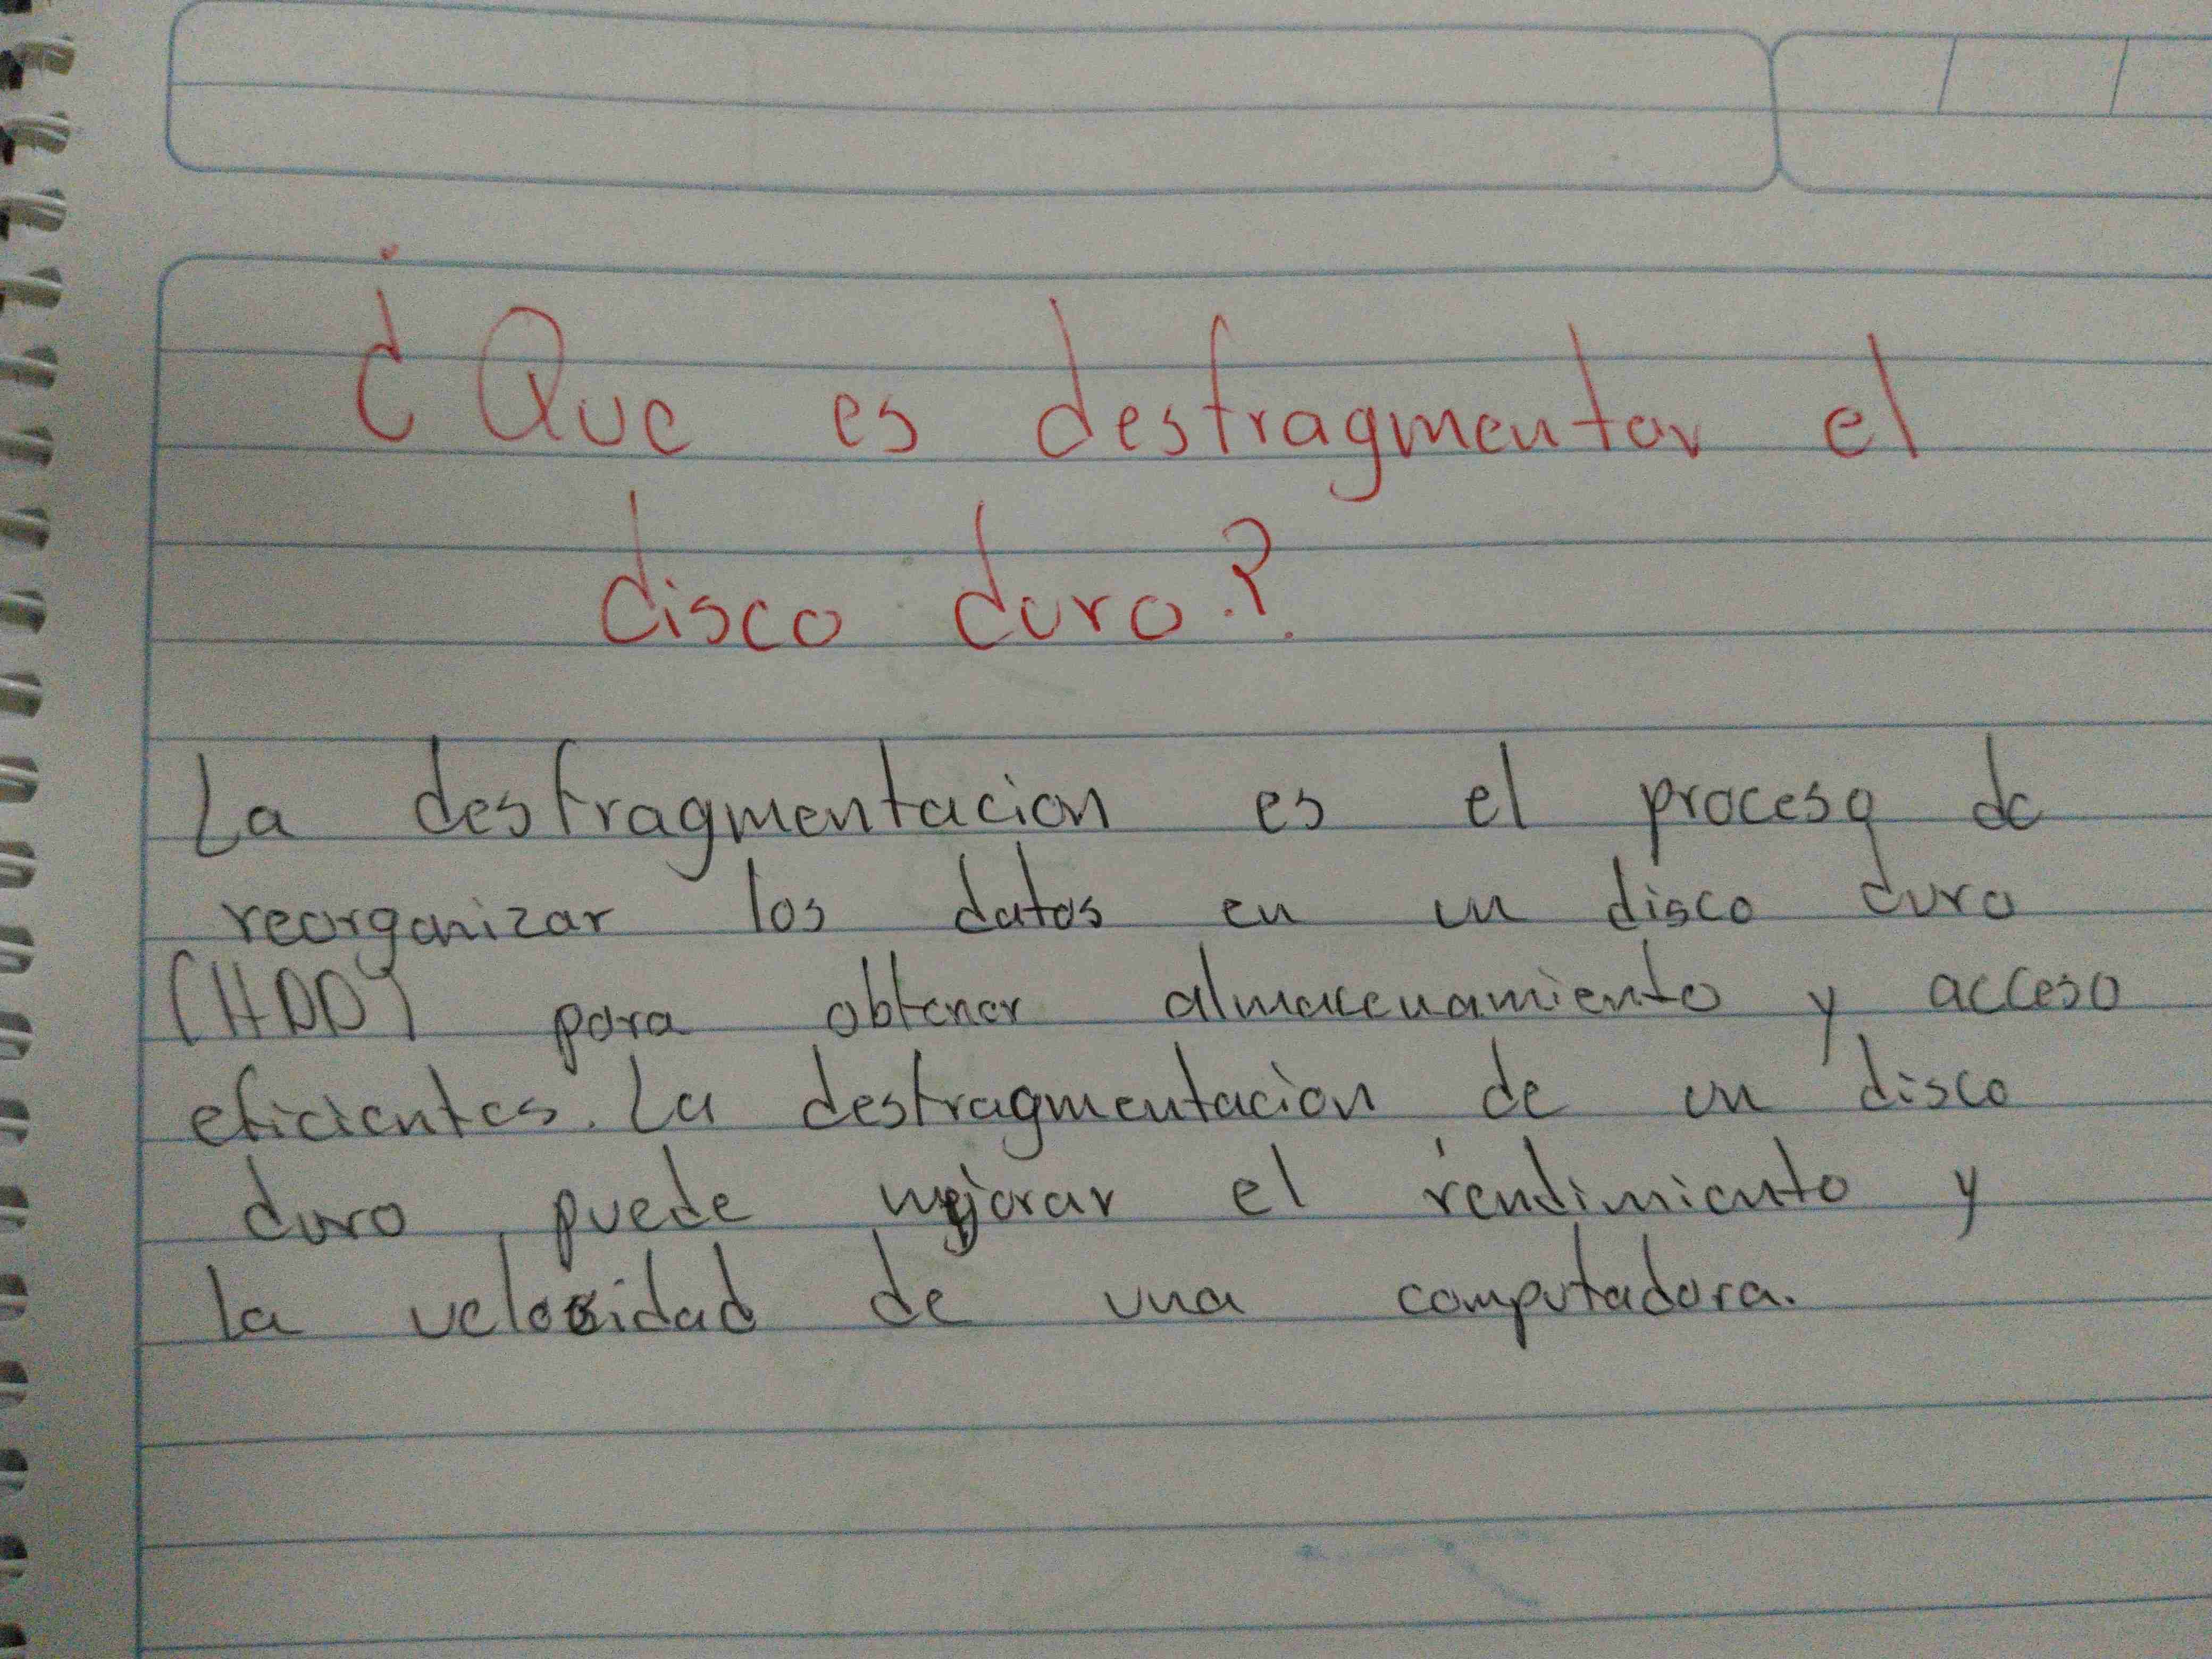 ¿Que es desfragmentar el
disco duro?
La desfragmentacion es el proceso de
reorganizar los datos en un disco duro
(HDD) para obtener almacenamiento y acceso
eficientes. La desfragmentacion de un disco
duro puede mejorar el rendimiento y
la velocidad de una computadora.